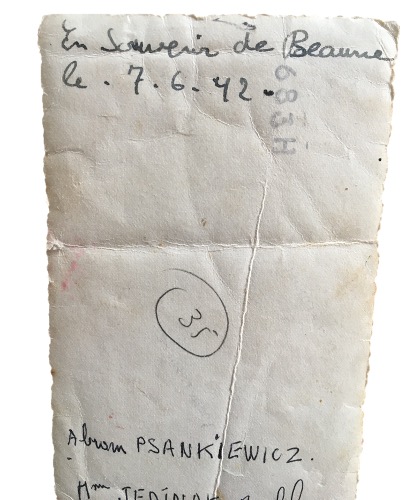 En Souvenir de Beaune
le . 7. 6. 42.
683H
35
Abram PSANKIEWICZ.
Mme